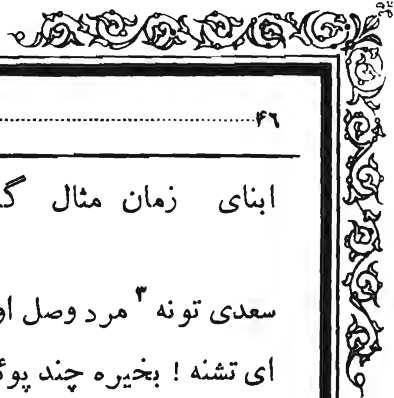 ۴۶
ابنای زمان مثال
سعدی تو نه ۳ مرد وصل
ای تشنه ! بخیره چند